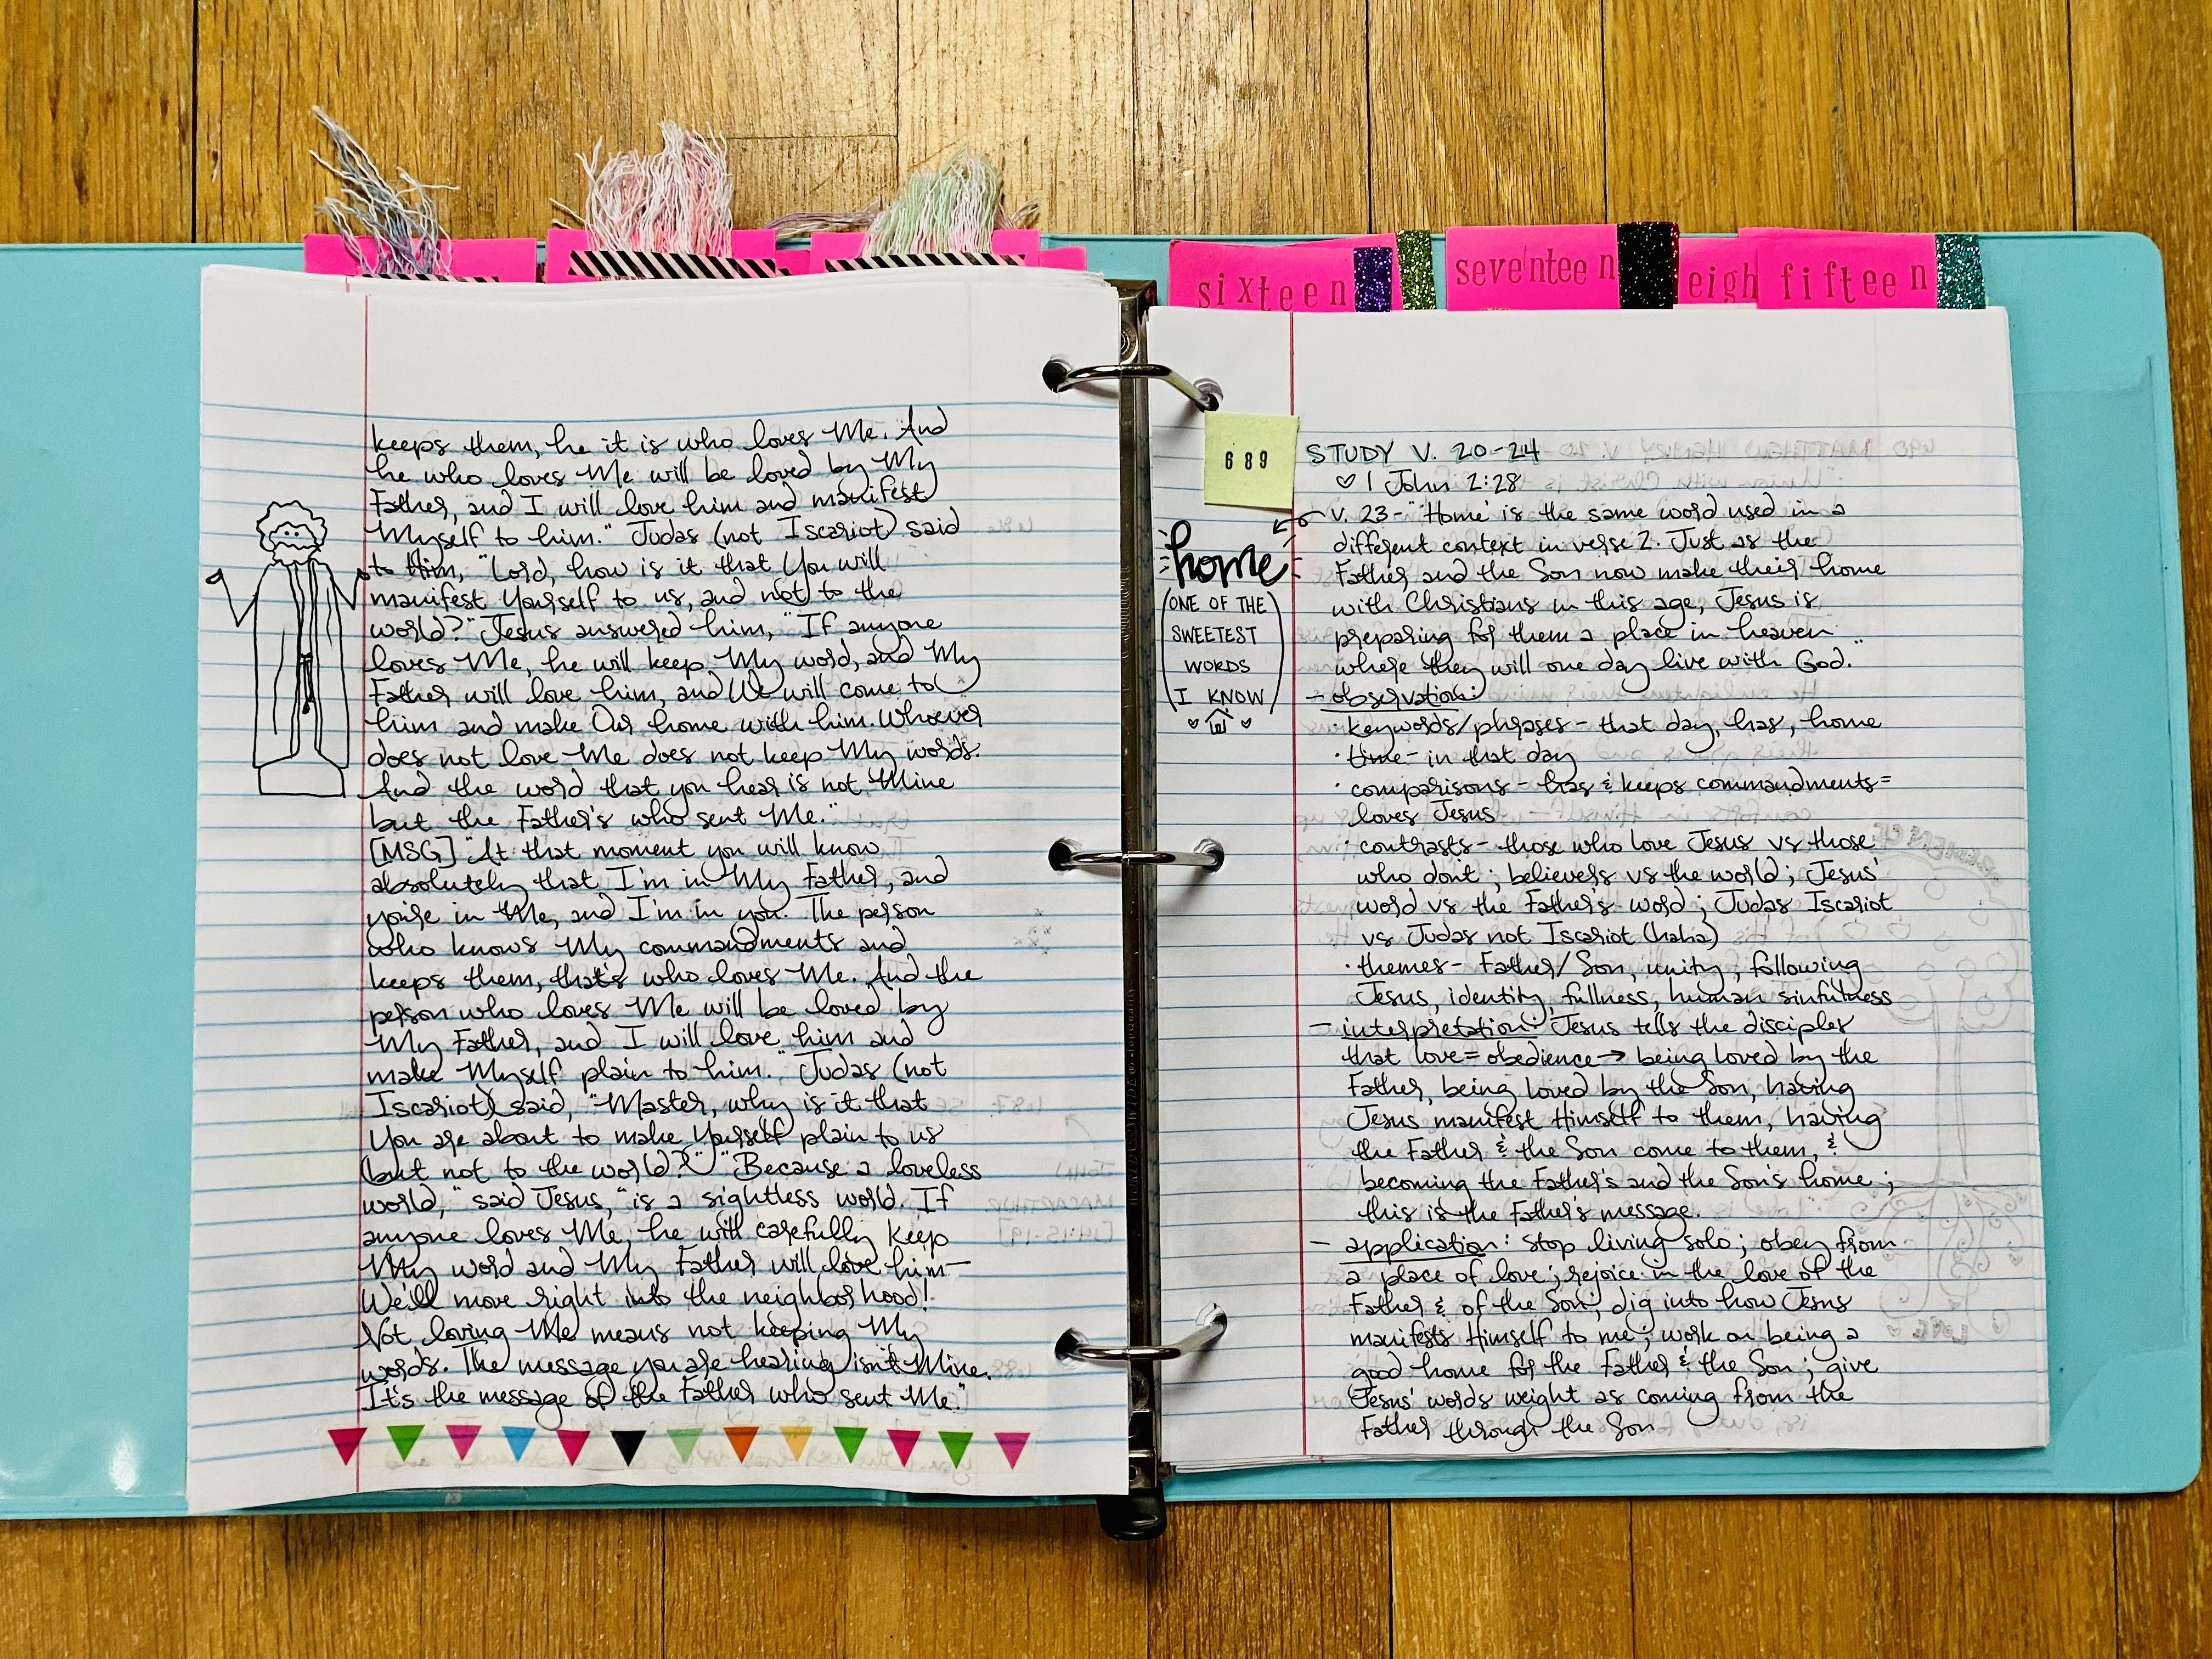 keeps them, he it is who loves Me. And
he who loves Me will be loved by My
Father, and I will love him and manifest
Myself to him." Judas (not Iscariot) said
to Him, "Lord, how is it that You will
manifest Yourself to us, and not to the
world?" Jesus answered him, "If anyone
loves Me, he will keep My word, and My
Father will love him, and We will come to
him and make Our home with him. Whoever
does not love Me does not keep My words.
And the word that you hear is not Mine
but the Father's who sent Me."
[MSG] "At that moment you will know
absolutely that I'm in My Father, and
you're in Me, and I'm in you. The person
who knows My commandments and
keeps them, that's who loves Me. And the
person who loves Me will be loved by
My Father, and I will love him and
make Myself plain to him." Judas (not
Iscariot) said, "Master, why is it that
You are about to make Yourself plain to us
but not to the world?" "Because a loveless
world," said Jesus, "is a sightless world. If
anyone loves Me, he will carefully keep
My word and My Father will love him—
We'll move right into the neighborhood!
Not loving Me means not keeping My
words. The message you are hearing isn't Mine.
It's the message of the Father who sent Me."
sixteen
seventeen
eigh
fifteen
689
STUDY V. 20-24
♡ 1 John 2:28
v. 23- "'Home' is the same word used in a
different context in verse 2. Just as the
Father and the Son now make their home
with Christians in this age, Jesus is
preparing for them a place in heaven
where they will one day live with God."
home
(ONE OF THE
SWEETEST
WORDS
I KNOW)
- observation:
· keywords/phrases - that day, has, home
· time - in that day
· comparisons - has & keeps commandments =
loves Jesus
· contrasts - those who love Jesus vs those
who don't; believers vs the world; Jesus'
word vs the Father's word; Judas Iscariot
vs Judas not Iscariot (haha)
· themes - Father/Son, unity, following
Jesus, identity, fullness, human sinfulness
- interpretation: Jesus tells the disciples
that love = obedience → being loved by the
Father, being loved by the Son, having
Jesus manifest Himself to them, having
the Father & the Son come to them, &
becoming the Father's and the Son's home;
this is the Father's message.
- application: stop living solo; obey from
a place of love; rejoice in the love of the
Father & of the Son; dig into how Jesus
manifests Himself to me; work on being a
good home for the Father & the Son; give
Jesus' words weight as coming from the
Father through the Son